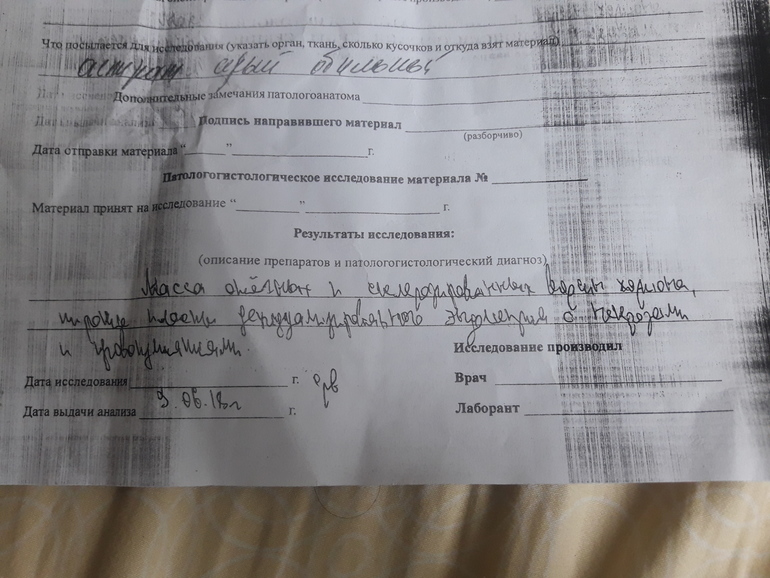 Что посылается для исследования (указать орган, ткань, сколько кусочков и откуда взят материал)
аспират обильный
Дополнительные замечания патологоанатома
Подпись направившего материал
(разборчиво)
Дата отправки материала “ ” г.
Патологогистологическое исследование материала №
Материал принят на исследование “ ” г.
Результаты исследования:
(описание препаратов и патологогистологический диагноз)
Масса отёчных и склерозированных ворсин хориона,
пласты децидуализированного эндометрия с некрозами
и кровоизлияниями.
Исследование производил
Дата исследования г.
Врач
Дата выдачи анализа 9.06.18г г.
Лаборант